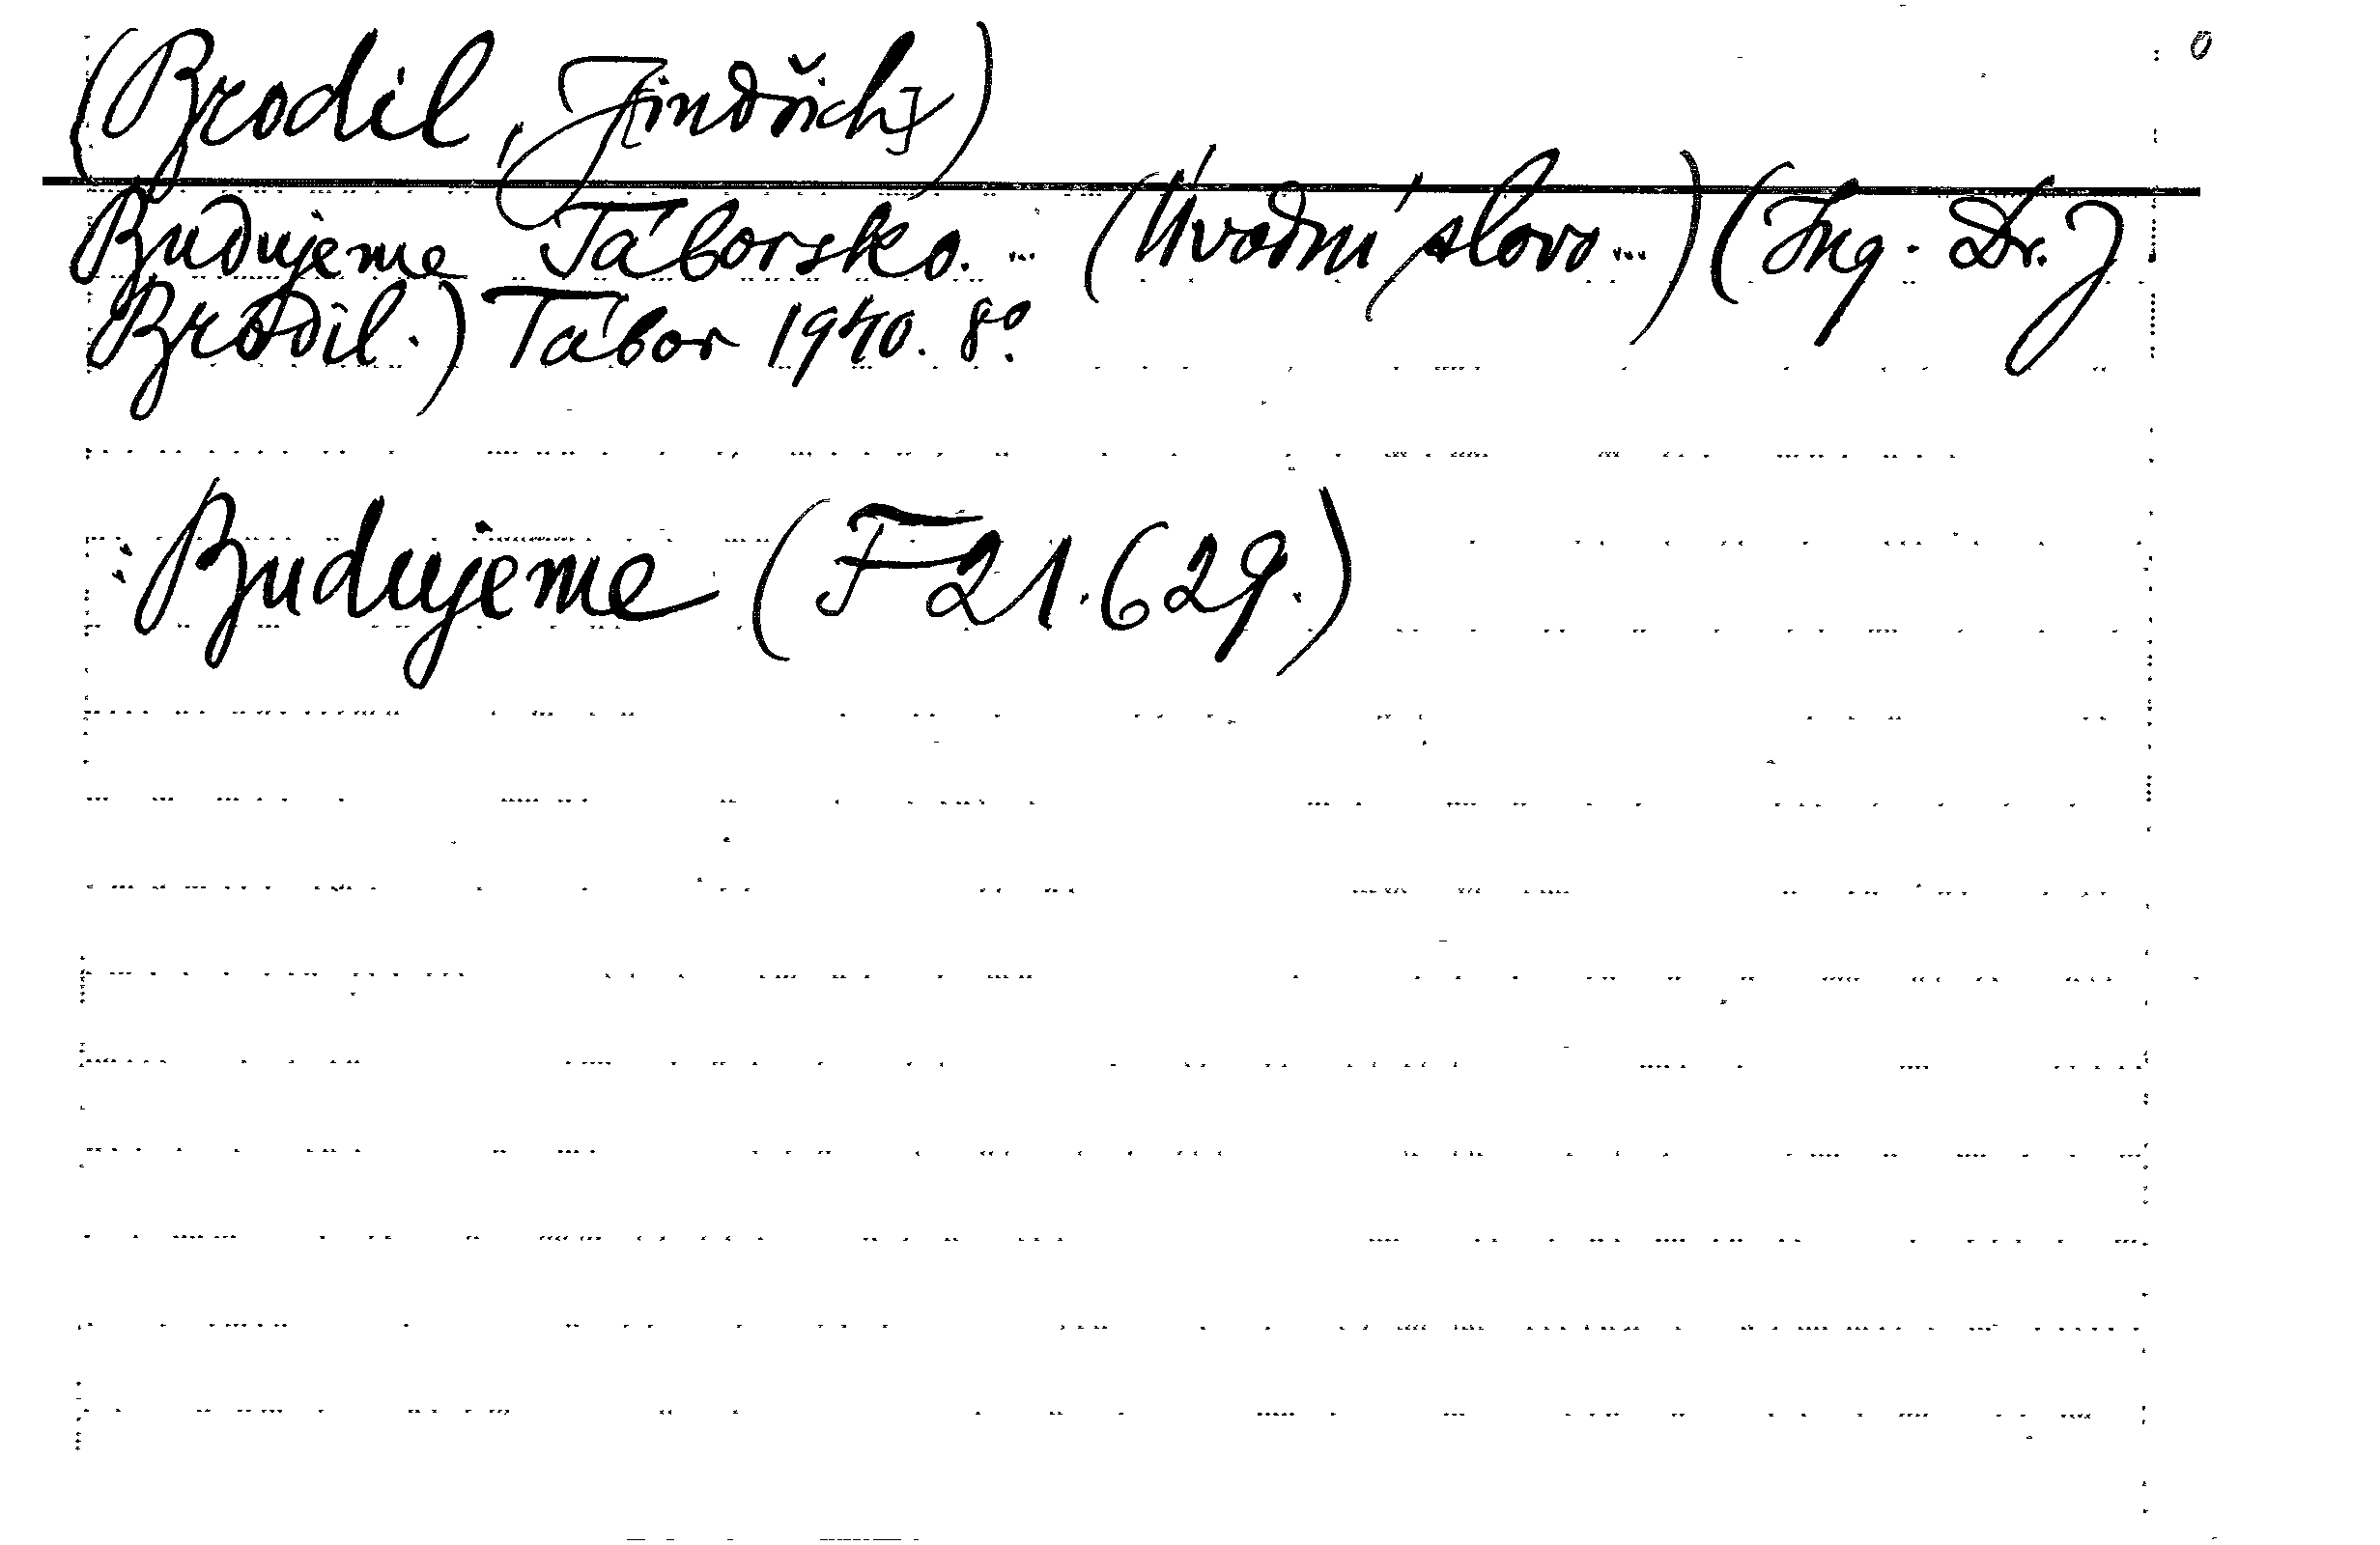 (Brodil, J[indřich])
Budujeme Táborsko. ... (Úvodní slovo ...) (Ing. Dr. J
Brodil.) Tábor 1940. 8º.
: Budujeme (F 21.629.)